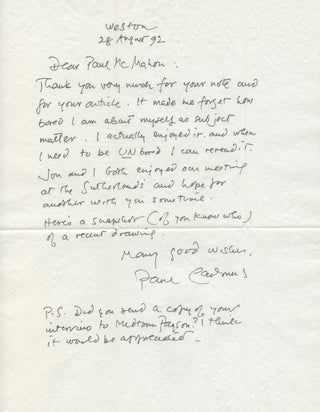 Weston
28 August 92
Dear Paul McMahon:
Thank you very much for your note and
for your article. It made me forget how
bored I am about myself as subject
matter. I actually enjoyed it. and when
I need to be UNbored I can reread it.
Jon and I both enjoyed our meeting
at the Sutherlands and hope for
another with you sometime.
Here's a snapshot (of you know who)
of a recent drawing.
Many good wishes,
Paul Cadmus
P.S. Did you send a copy of your
interview to Midtown Payson? I think
it would be appreciated_